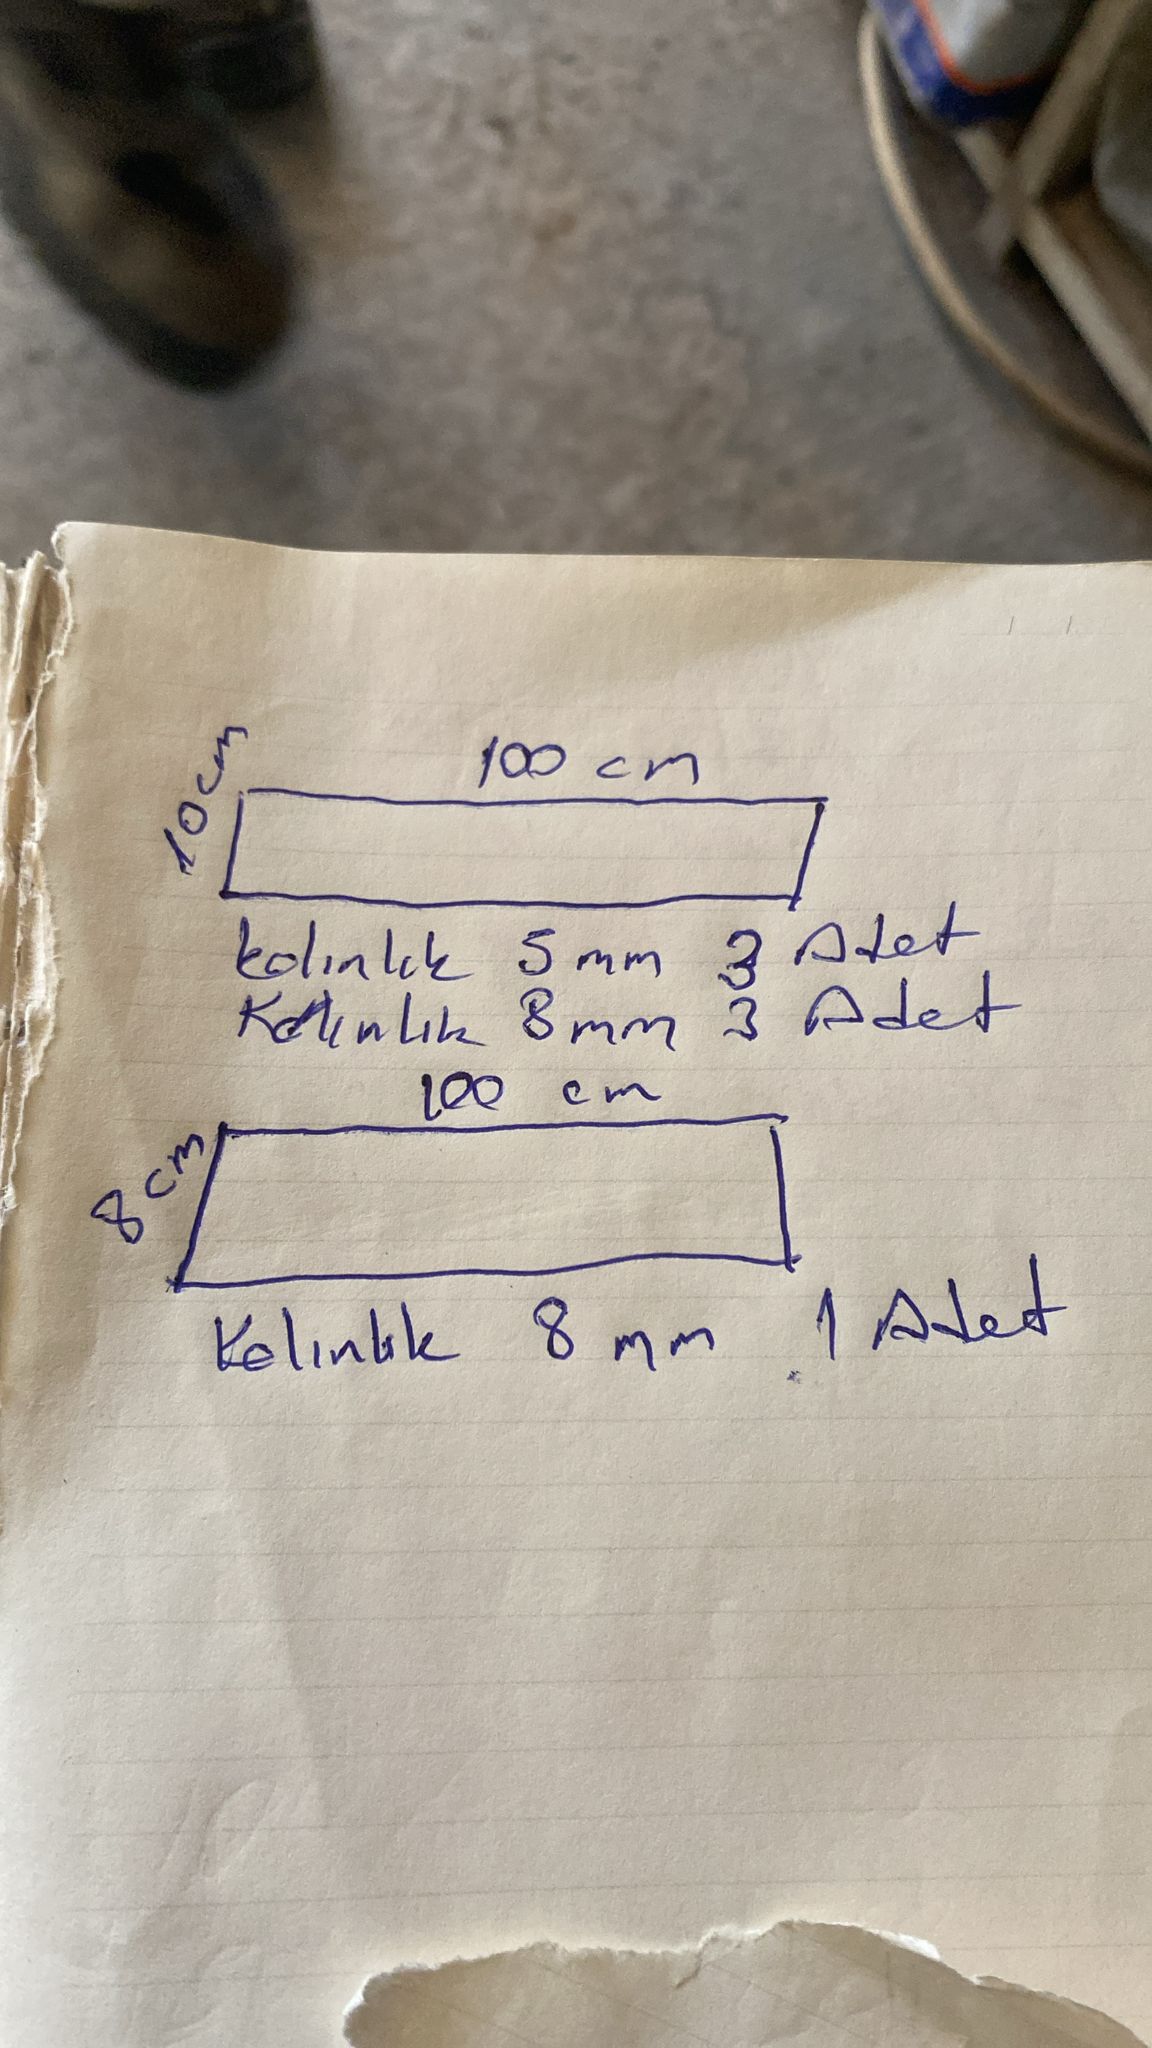 100 cm
10 cm
kalınlık 5 mm 3 Adet
Kalınlık 8 mm 3 Adet
100 cm
8 cm
Kalınlık 8 mm 1 Adet